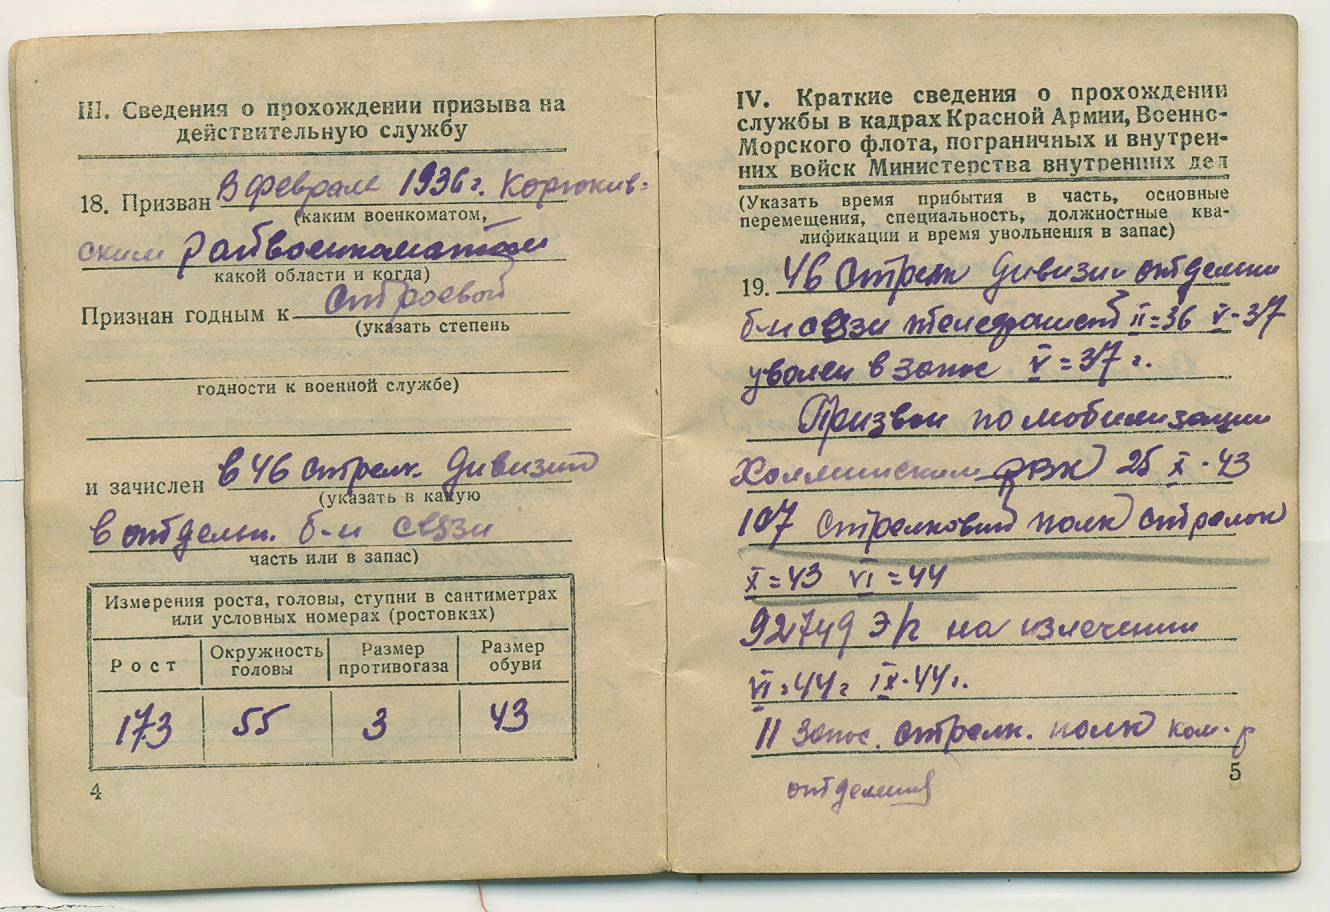 III. Сведения о прохождении призыва на
действительную службу
18. Призван В феврале 1936 г. Корюков-
(каким военкоматом,
ским райвоенкоматом
какой области и когда)
Признан годным к строевой
(указать степень
годности к военной службе)
и зачислен в 46 стрелк. дивизию
(указать в какую
в отдельн. б-н связи
часть или в запас)
Измерения роста, головы, ступни в сантиметрах
или условных номерах (ростовках)
Рост Окружность головы Размер противогаза Размер обуви
173 55 3 43
4
IV. Краткие сведения о прохождении
службы в кадрах Красной Армии, Военно-
Морского флота, пограничных и внутрен-
них войск Министерства внутренних дел
(Указать время прибытия в часть, основные
перемещения, специальность, должностные ква-
лификации и время увольнения в запас)
19. 46 стрелк дивизии отдельн
б-н связи телефонист II=36 V-37
уволен в запас V=37 г.
Призван по мобилизации
Холминским РВК 25 X-43
107 стрелковый полк стрелок
X=43 VI=44
92749 Э/г на излечении
VI=44г IX-44г.
11 запас. стрелк. полк ком-р
5
отделения